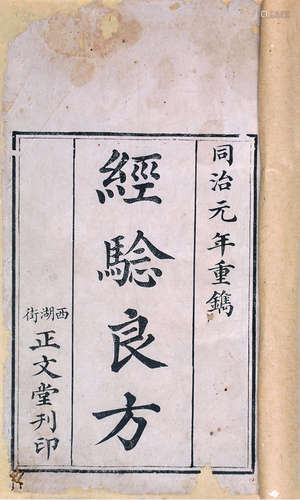 同治元年重鐫
經驗良方
西湖街
正文堂刊印